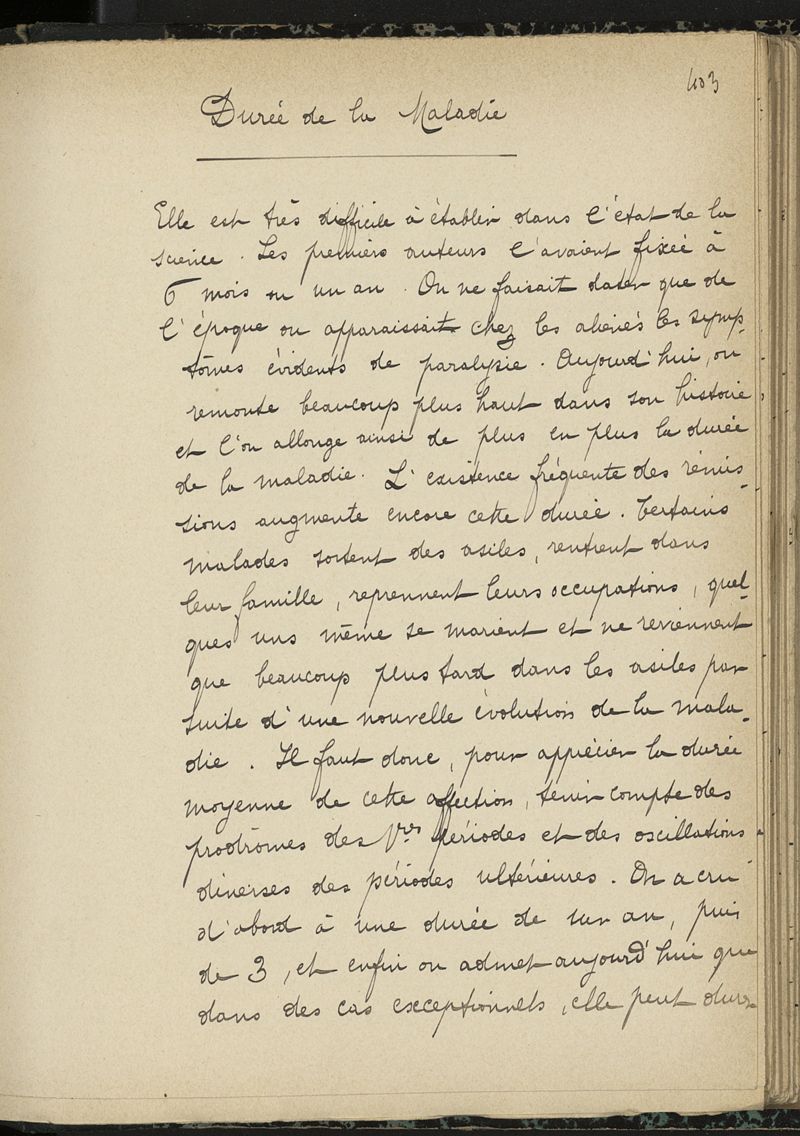 403
Durée de la Maladie
Elle est très difficile à établir dans l'état de la
science. Les premiers auteurs l'avaient fixée à
6 mois ou un an. On ne faisait dater que de
l'époque ou apparaissait chez les aliénés les symp-
tômes évidents de paralysie. Aujourd'hui, on
remonte beaucoup plus haut dans son histoire
et l'on allonge ainsi de plus en plus la durée
de la maladie. L'existence fréquente des rémis-
sions augmente encore cette durée. Certains
malades sortent des asiles, rentrent dans
leur famille, reprennent leurs occupations, quel-
ques uns même se marient et ne reviennent
que beaucoup plus tard dans les asiles par
suite d'une nouvelle évolution de la mala-
die. Il faut donc, pour apprécier la durée
moyenne de cette affection, tenir compte des
prodrômes des 1res périodes et des oscillations
diverses des périodes ultérieures. On a cru
d'abord à une durée de un an, puis
de 3, et enfin on admet aujourd'hui que
dans des cas exceptionnels, elle peut durer